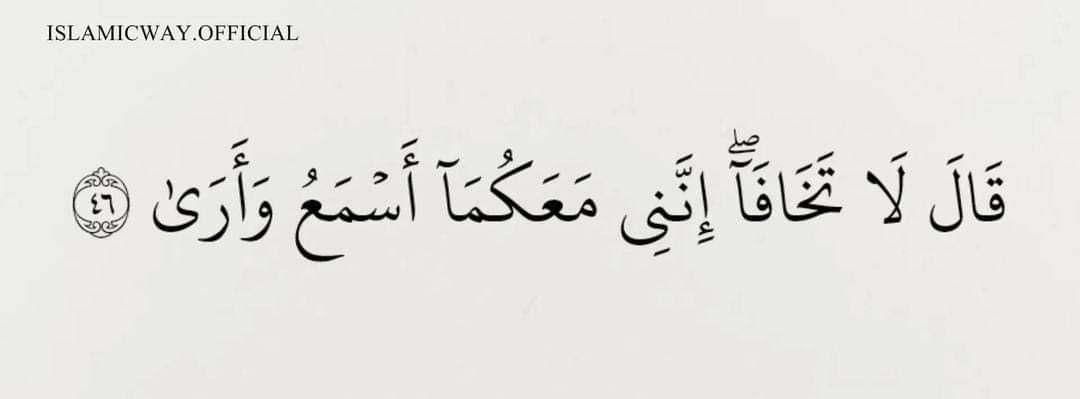 ISLAMICWAY.OFFICIAL
قَالَ لَا تَخَافَآ ۖ إِنَّنِى مَعَكُمَآ أَسْمَعُ وَأَرَىٰ ٤٦